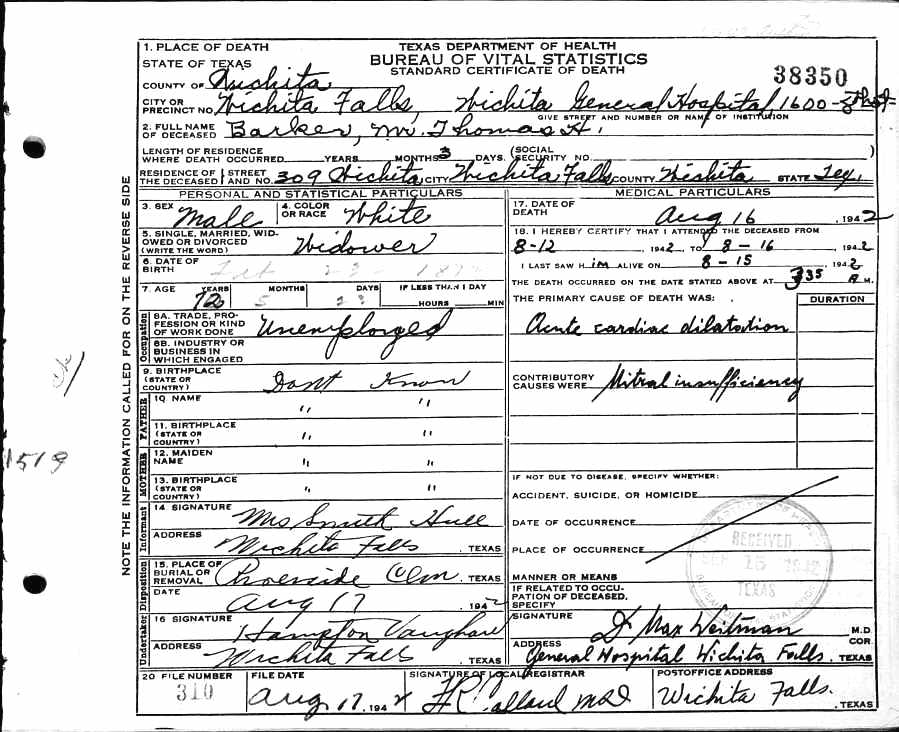 TEXAS DEPARTMENT OF HEALTH
BUREAU OF VITAL STATISTICS
STANDARD CERTIFICATE OF DEATH
38350
1. PLACE OF DEATH
STATE OF TEXAS
COUNTY OF Wichita
CITY OR PRECINCT NO. Wichita Falls, Wichita General Hospital 1600-8th st
GIVE STREET AND NUMBER OR NAME OF INSTITUTION
2. FULL NAME OF DECEASED Barker, Mr. Thomas H.
LENGTH OF RESIDENCE WHERE DEATH OCCURRED YEARS MONTHS 3 DAYS. (SOCIAL SECURITY NO. )
RESIDENCE OF THE DECEASED STREET AND NO. 309 Wichita CITY Wichita Falls COUNTY Wichita STATE Tex.
PERSONAL AND STATISTICAL PARTICULARS
3. SEX Male
4. COLOR OR RACE White
5. SINGLE, MARRIED, WIDOWED OR DIVORCED (WRITE THE WORD) Widower
6. DATE OF BIRTH
7. AGE YEARS 72 MONTHS 5 DAYS IF LESS THAN 1 DAY HOURS MIN
Occupation
8A. TRADE, PROFESSION OR KIND OF WORK DONE Unemployed
8B. INDUSTRY OR BUSINESS IN WHICH ENGAGED
9. BIRTHPLACE (STATE OR COUNTRY) Dont Know
FATHER
10. NAME " "
11. BIRTHPLACE (STATE OR COUNTRY) " "
MOTHER
12. MAIDEN NAME " "
13. BIRTHPLACE (STATE OR COUNTRY) " "
Informant
14. SIGNATURE Mrs Smith Hull
ADDRESS Wichita Falls , TEXAS
Disposition
15. PLACE OF BURIAL OR REMOVAL Riverside Cem , TEXAS
DATE Aug 17 , 1942
Undertaker
16. SIGNATURE Hampton Vaughan
ADDRESS Wichita Falls , TEXAS
MEDICAL PARTICULARS
17. DATE OF DEATH Aug 16 , 1942
18. I HEREBY CERTIFY THAT I ATTENDED THE DECEASED FROM
8-12 1942 TO 8-16 , 1942
I LAST SAW HIM ALIVE ON 8-15 1942
THE DEATH OCCURRED ON THE DATE STATED ABOVE AT 335 A M.
THE PRIMARY CAUSE OF DEATH WAS: DURATION
Acute cardiac dilatation
CONTRIBUTORY CAUSES WERE Mitral insufficiency
IF NOT DUE TO DISEASE, SPECIFY WHETHER:
ACCIDENT, SUICIDE, OR HOMICIDE
DATE OF OCCURRENCE
PLACE OF OCCURRENCE
MANNER OR MEANS
IF RELATED TO OCCUPATION OF DECEASED, SPECIFY
RECEIVED
SEP 15 1942
TEXAS
SIGNATURE Dr Max Weitman M.D. COR.
ADDRESS General Hospital Wichita Falls , TEXAS
20 FILE NUMBER 310
FILE DATE Aug 17, 1942
SIGNATURE OF LOCAL REGISTRAR
POSTOFFICE ADDRESS Wichita Falls. , TEXAS
NOTE THE INFORMATION CALLED FOR ON THE REVERSE SIDE
1519